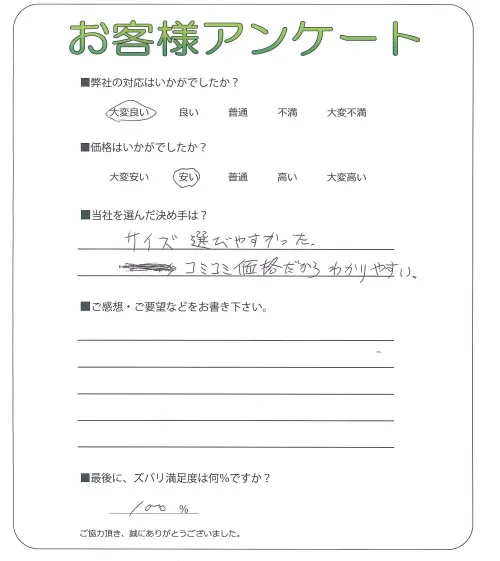 お客様アンケート
■弊社の対応はいかがでしたか？
大変良い 良い 普通 不満 大変不満
■価格はいかがでしたか？
大変安い 安い 普通 高い 大変高い
■当社を選んだ決め手は？
サイズ 選びやすかった.
コミコミ価格だから わかりやすい。
■ご感想・ご要望などをお書き下さい。
■最後に、ズバリ満足度は何%ですか？
100 %
ご協力頂き、誠にありがとうございました。